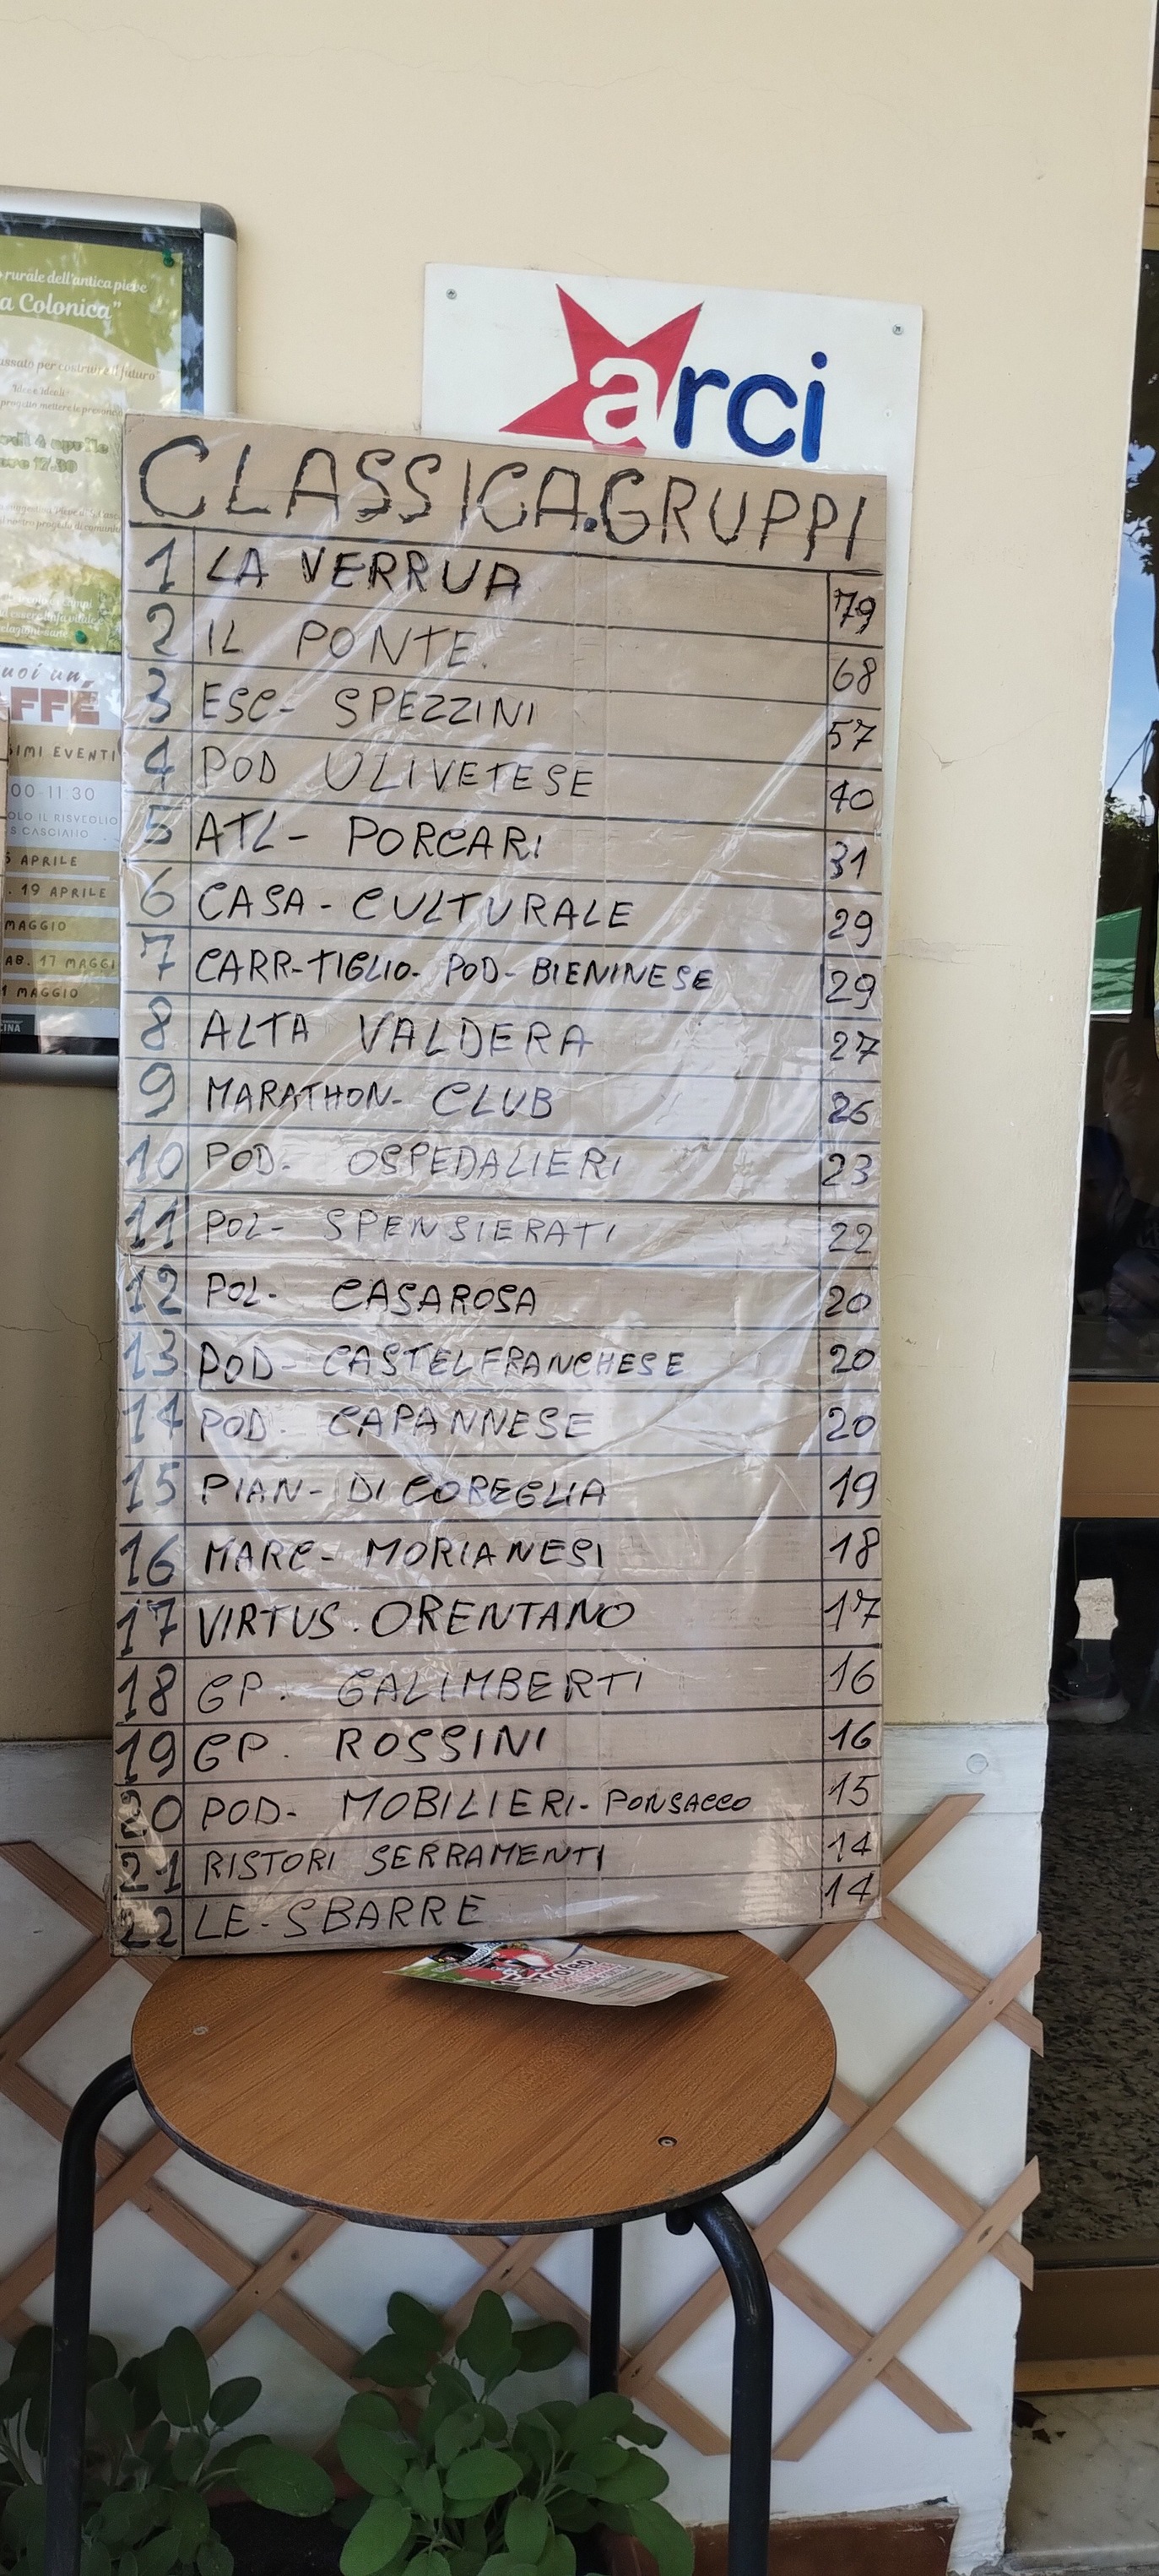 rurale dell'antica pieve
a Colonica"
per costruire il futuro"
arci
CLASSICA.GRUPPI
1 LA VERRUA 79
2 IL PONTE. 68
3 ESC- SPEZZINI 57
4 POD ULIVETESE 40
5 ATL- PORCARI 31
6 CASA - CULTURALE 29
7 CARR-TIGLIO- POD- BIENINESE 29
8 ALTA VALDERA 27
9 MARATHON- CLUB 26
10 POD- OSPEDALIERI 23
11 POL- SPENSIERATI 22
12 POL- CASAROSA 20
13 POD- CASTELFRANCHESE 20
14 POD. CAPANNESE 20
15 PIAN- DI COREGLIA 19
16 MARC- MORIANESI 18
17 VIRTUS . ORENTANO 17
18 GP. GALIMBERTI 16
19 GP. ROSSINI 16
20 POD- MOBILIERI- PONSACCO 15
21 RISTORI SERRAMENTI 14
22 LE-SBARRE 14
uoi un
FFÉ
SIMI EVENTI
00-11 30
OLO IL RISVEGLIO
S CASCIANO
APRILE
. 19 APRILE
MAGGIO
AB. 17 MAGGI
MAGGIO
CINA
Trofeo